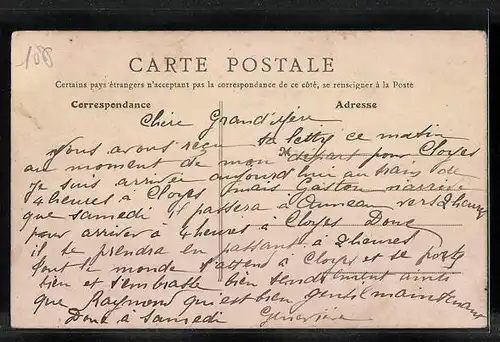 108
CARTE POSTALE
Certains pays étrangers n'acceptant pas la correspondance de ce côté, se renseigner à la Poste
Correspondance
Adresse
Chère Grand'mère
Nous avons reçu ta lettre ce matin
au moment de mon départ pour Cloyes
Je suis arrivée aujourd'hui au train de
4 heures à Cloyes mais Gaston n'arrive
que samedi il passera à Auneau vers 2 heures
pour arriver à 4 heures à Cloyes Donc
il te prendra en passant à 2 heures
tout le monde t'attend à Cloyes et se porte
bien et t'embrasse bien tendrement ainsi
que Raymond qui est bien gentil maintenant
Donc à samedi
Geneviève